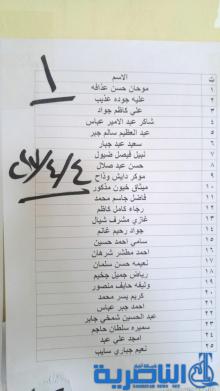 ت الاسم
١ موحان حسن عذافه
٢ علية جوده عذيب
٣ علي كاظم جواد
٤ شاكر عبد الامير عباس
٥ عبد العظيم سالم جبر
٦ سعيد عبد جبار
٧ نبيل فيصل ضيول
٨ حسن عبد صلال
٩ موكر دايش وداح
١٠ ميثاق خيون مذكور
١١ فاضل جاسم محمد
١٢ رجاء كامل كاظم
١٣ غازي مشرف شيال
١٤ جواد رحيم غانم
١٥ سامي احمد حسين
١٦ احمد مطشر شرهان
١٧ نعيمه حسن سلمان
١٨ رياض جميل جخيم
١٩ وثيقه حايف منصور
٢٠ كريم يسر محمد
٢١ احمد جبر عباس
٢٢ عبد الحسين شمخي جابر
٢٣ سميره سلطان حاجم
٢٤ امجد علي عبد
٢٥ نعيم جباري سايب
١
الناصرية